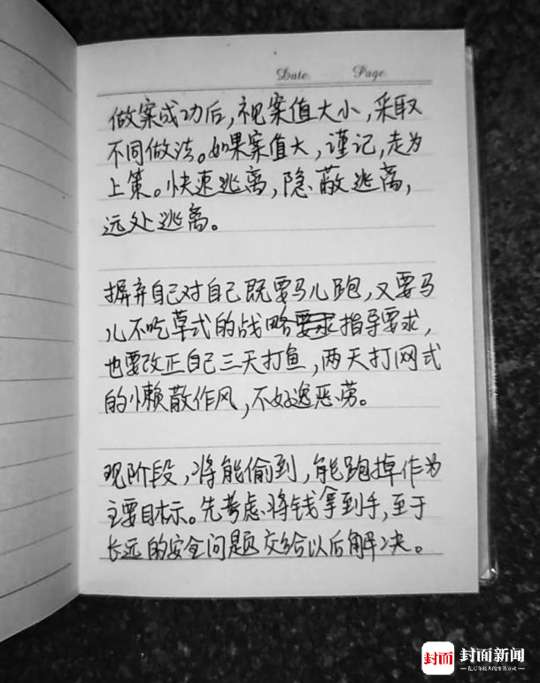 Date   Page
做案成功后，视案值大小，采取
不同做法。如果案值大，谨记，走为
上策。快速逃离，隐蔽逃离，
远处逃离。
摒弃自己对自己既要马儿跑，又要马
儿不吃草式的战略要求指导要求，
也要改正自己三天打鱼，两天打网式
的懒散作风，不好逸恶劳。
现阶段，将能偷到，能跑掉作为
主要目标。先考虑将钱拿到手，至于
长远的安全问题交给以后解决。
封面 封面新闻